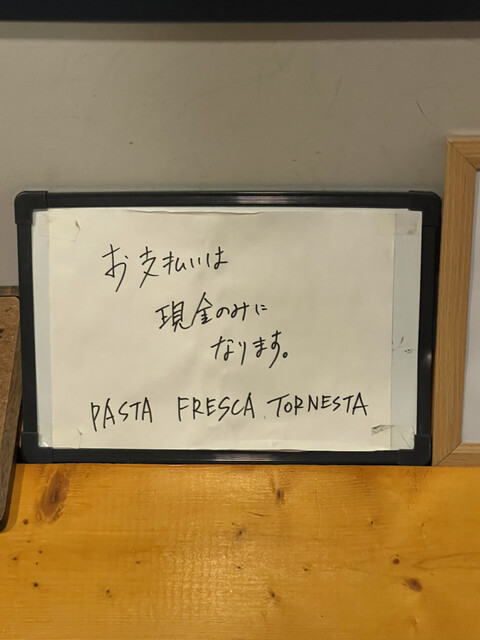 お支払いは
現金のみに
なります。
PASTA FRESCA TORNESTA